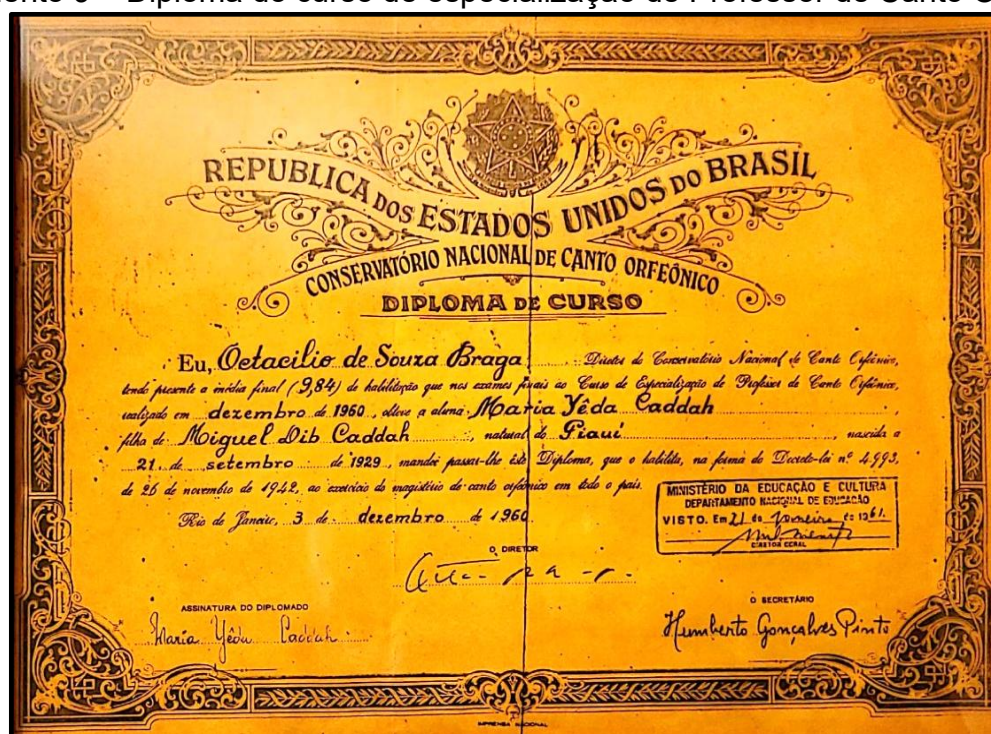 Diploma do curso de especialização de Professor de Canto
REPUBLICA DOS ESTADOS UNIDOS DO BRASIL
CONSERVATÓRIO NACIONAL DE CANTO ORFEÔNICO
DIPLOMA DE CURSO
Eu, Octacilio de Souza Braga Diretor do Conservatório Nacional de Canto Orfeônico,
tendo presente a média final (9,84) de habilitação que nos exames finais ao Curso de Especialização de Professor de Canto Orfeônico,
realizado em dezembro de 1960, obteve a aluna Maria Yêda Caddah,
filha de Miguel Dib Caddah, natural do Piauí, nascida a
21 de setembro de 1929, mandei passar-lhe êste Diploma, que o habilita, na forma do Decreto-lei nº 4.993,
de 26 de novembro de 1942, ao exercício do magistério de canto orfeônico em todo o país.
Rio de Janeiro, 3 de dezembro de 1960
MINISTÉRIO DA EDUCAÇÃO E CULTURA
DEPARTAMENTO NACIONAL DE EDUCAÇÃO
VISTO. Em 21 de de 1961.
DIRETOR GERAL
O DIRETOR
ASSINATURA DO DIPLOMADO
Maria Yêda Caddah
O SECRETÁRIO
Humberto Gonçalves Pinto
IMPRENSA NACIONAL